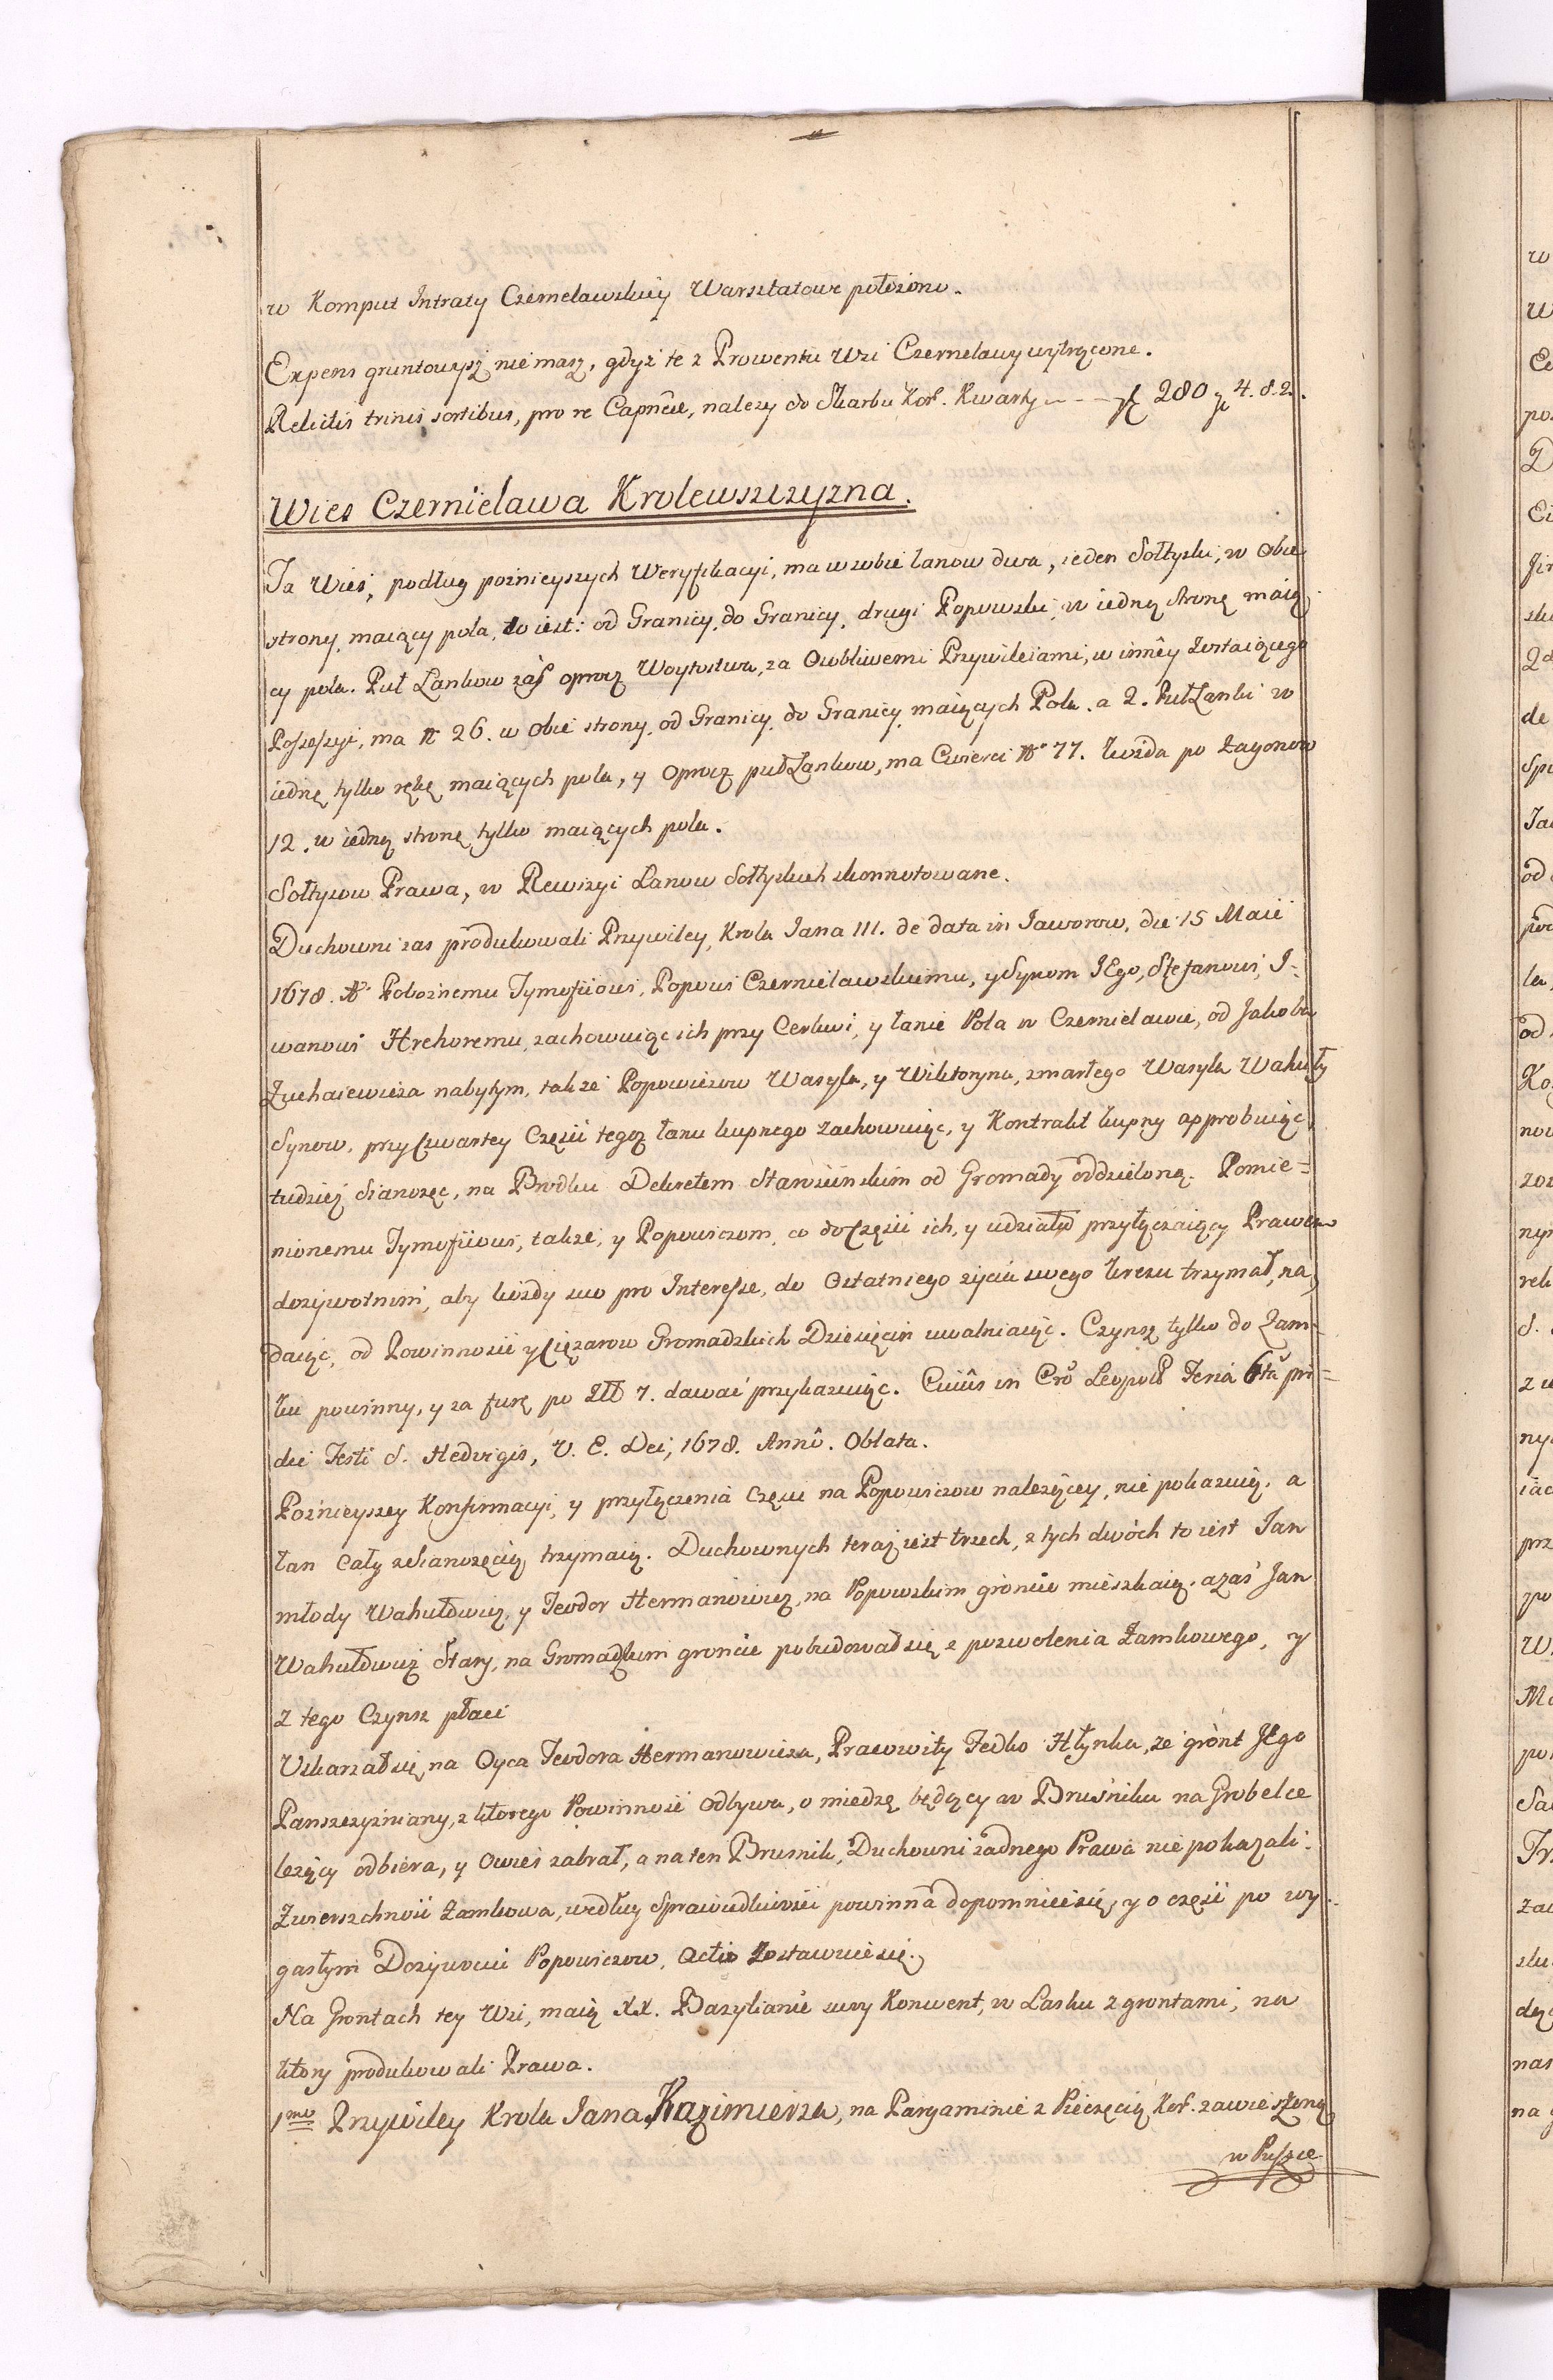 w Komput Intraty Czernelawskiey Warsztatowe położono.
Expens gruntowysz niemasz, gdyż te z Prowentu Wsi Czernelawy wytrącone.
Relictis trinis sortibus, pro re Capnēae, nalezy do Skarbu Kor. Kwarty - - - 280 4. 8. 2.
Wies Czernielawa Krolewszczyzna.
Ta Wieś, podług poznieyszych Weryfikacyi, ma w sobie łanow dwa, ieden Sołtyski, w obie
strony maiący pola, to iest: od Granicy, do Granicy, drugi Popowski, w iedną stronę maią-
cy pola. Puł Lankow zaś oprocz Woytostwa, za Osobliwemi Przywileiami, w innêy zostaiącego
Possessyi, ma N 26. w obie strony, od Granicy, do Granicy maiących Pola. a 2. PułLanki w
iednę tylko rękę maiących pola, y oprocz pułLankow, ma Cwierci No 77. kożda po Zagonow
12. w iedną stronę tylko maiących pola.
Sołtysow Prawa, w Rewizyi Lanow Sołtyskich skonnotowane.
Duchowni zas produkowali Przywiley, Krola Jana III. de data in Jaworow, die 15 Maii
1678. Ao Poboznemu Tymofiiowi, Popowi Czernielawskiemu, y Synom JEgo, Stefanowi, I-
wanowi Hrehoremu, zachowuiąc ich przy Cerkwi, y łanie Pola w Czernielawie, od Jakoba
Zuchaiewicza nabytym, takze Popowiczow Wasyla, y Wiktoryna, zmarłego Wasyla Wakuły
Synow, przy Czwartey Częsci tegoz łanu kupnego zachowuiąc, y Kontrakt kupny approbuiąc,
tudziesz Sianozęc, na Brodku Dekretem Starościnskim od Gromady oddzieloną. Pomie=
nionemu Tymofiiowi, takze, y Popowiczom, co do Częsci ich, y udziału przyłączaiący Prawem
dozywotnim, aby kozdy swo pro Interesse, do Ostatniego zycia swego kresu trzymał, na,
daiąc, od Powinnosci y Cięzarow Gromadzkich Dziesięcin uwalniaiąc. Czynsz tylko do Zam=
ku powinny, y za furę po Złł 7. dawać przykazuiąc. Cuius in Cro Leopol Feria 6ta pri=
die Festi S. Hedvigis, V. E. Dei, 1678. Annô. Oblata.
Poznieyszey Konfirmacyi, y przyłączenia Częsci na Popowiczow nalezącey, nie pokazuią, a
łan cały z sianozęcią trzymaią. Duchownych teraz iest trzech, z tych dwóch to iest Jan
młody Wakułowicz, y Teodor Hermanowicz, na Popowskim gròncie mieszkaią, a zaś Jan
Wakułowicz Stary, na Gromadzkim groncie pobudował się z pozwolenia Zamkowego, y
z tego Czynsz płaci
Uskarzał się na Oyca Teodora Hermanowicza, Pracowity Fedko Hłynka, ze grònt JEgo
Panszczyzniany, z ktorego Powinnosć odbywa, o miedzę będący w Bruśniku na Grobelce
lezący odbiera, y owies zabrał, a na ten Brusnik, Duchowni zadnego Prawa nie pokazali.
Zwierzchnosć Zamkowa, według Sprawiedliwosci powinna dopomnieć się, y o części po wy-
gasłym Dozywociu Popowiczow, Actio Zostawuie się.
Na Gròntach tey Wsi, maią XX. Bazylianie swoy Konwent, w Lasku z grontami, na
ktory produkowali Prawa.
1mo Przywiley Krola Jana Kazimierza, na Pargaminie z Pieczęcią Kor. zawieszoną
w Puszce